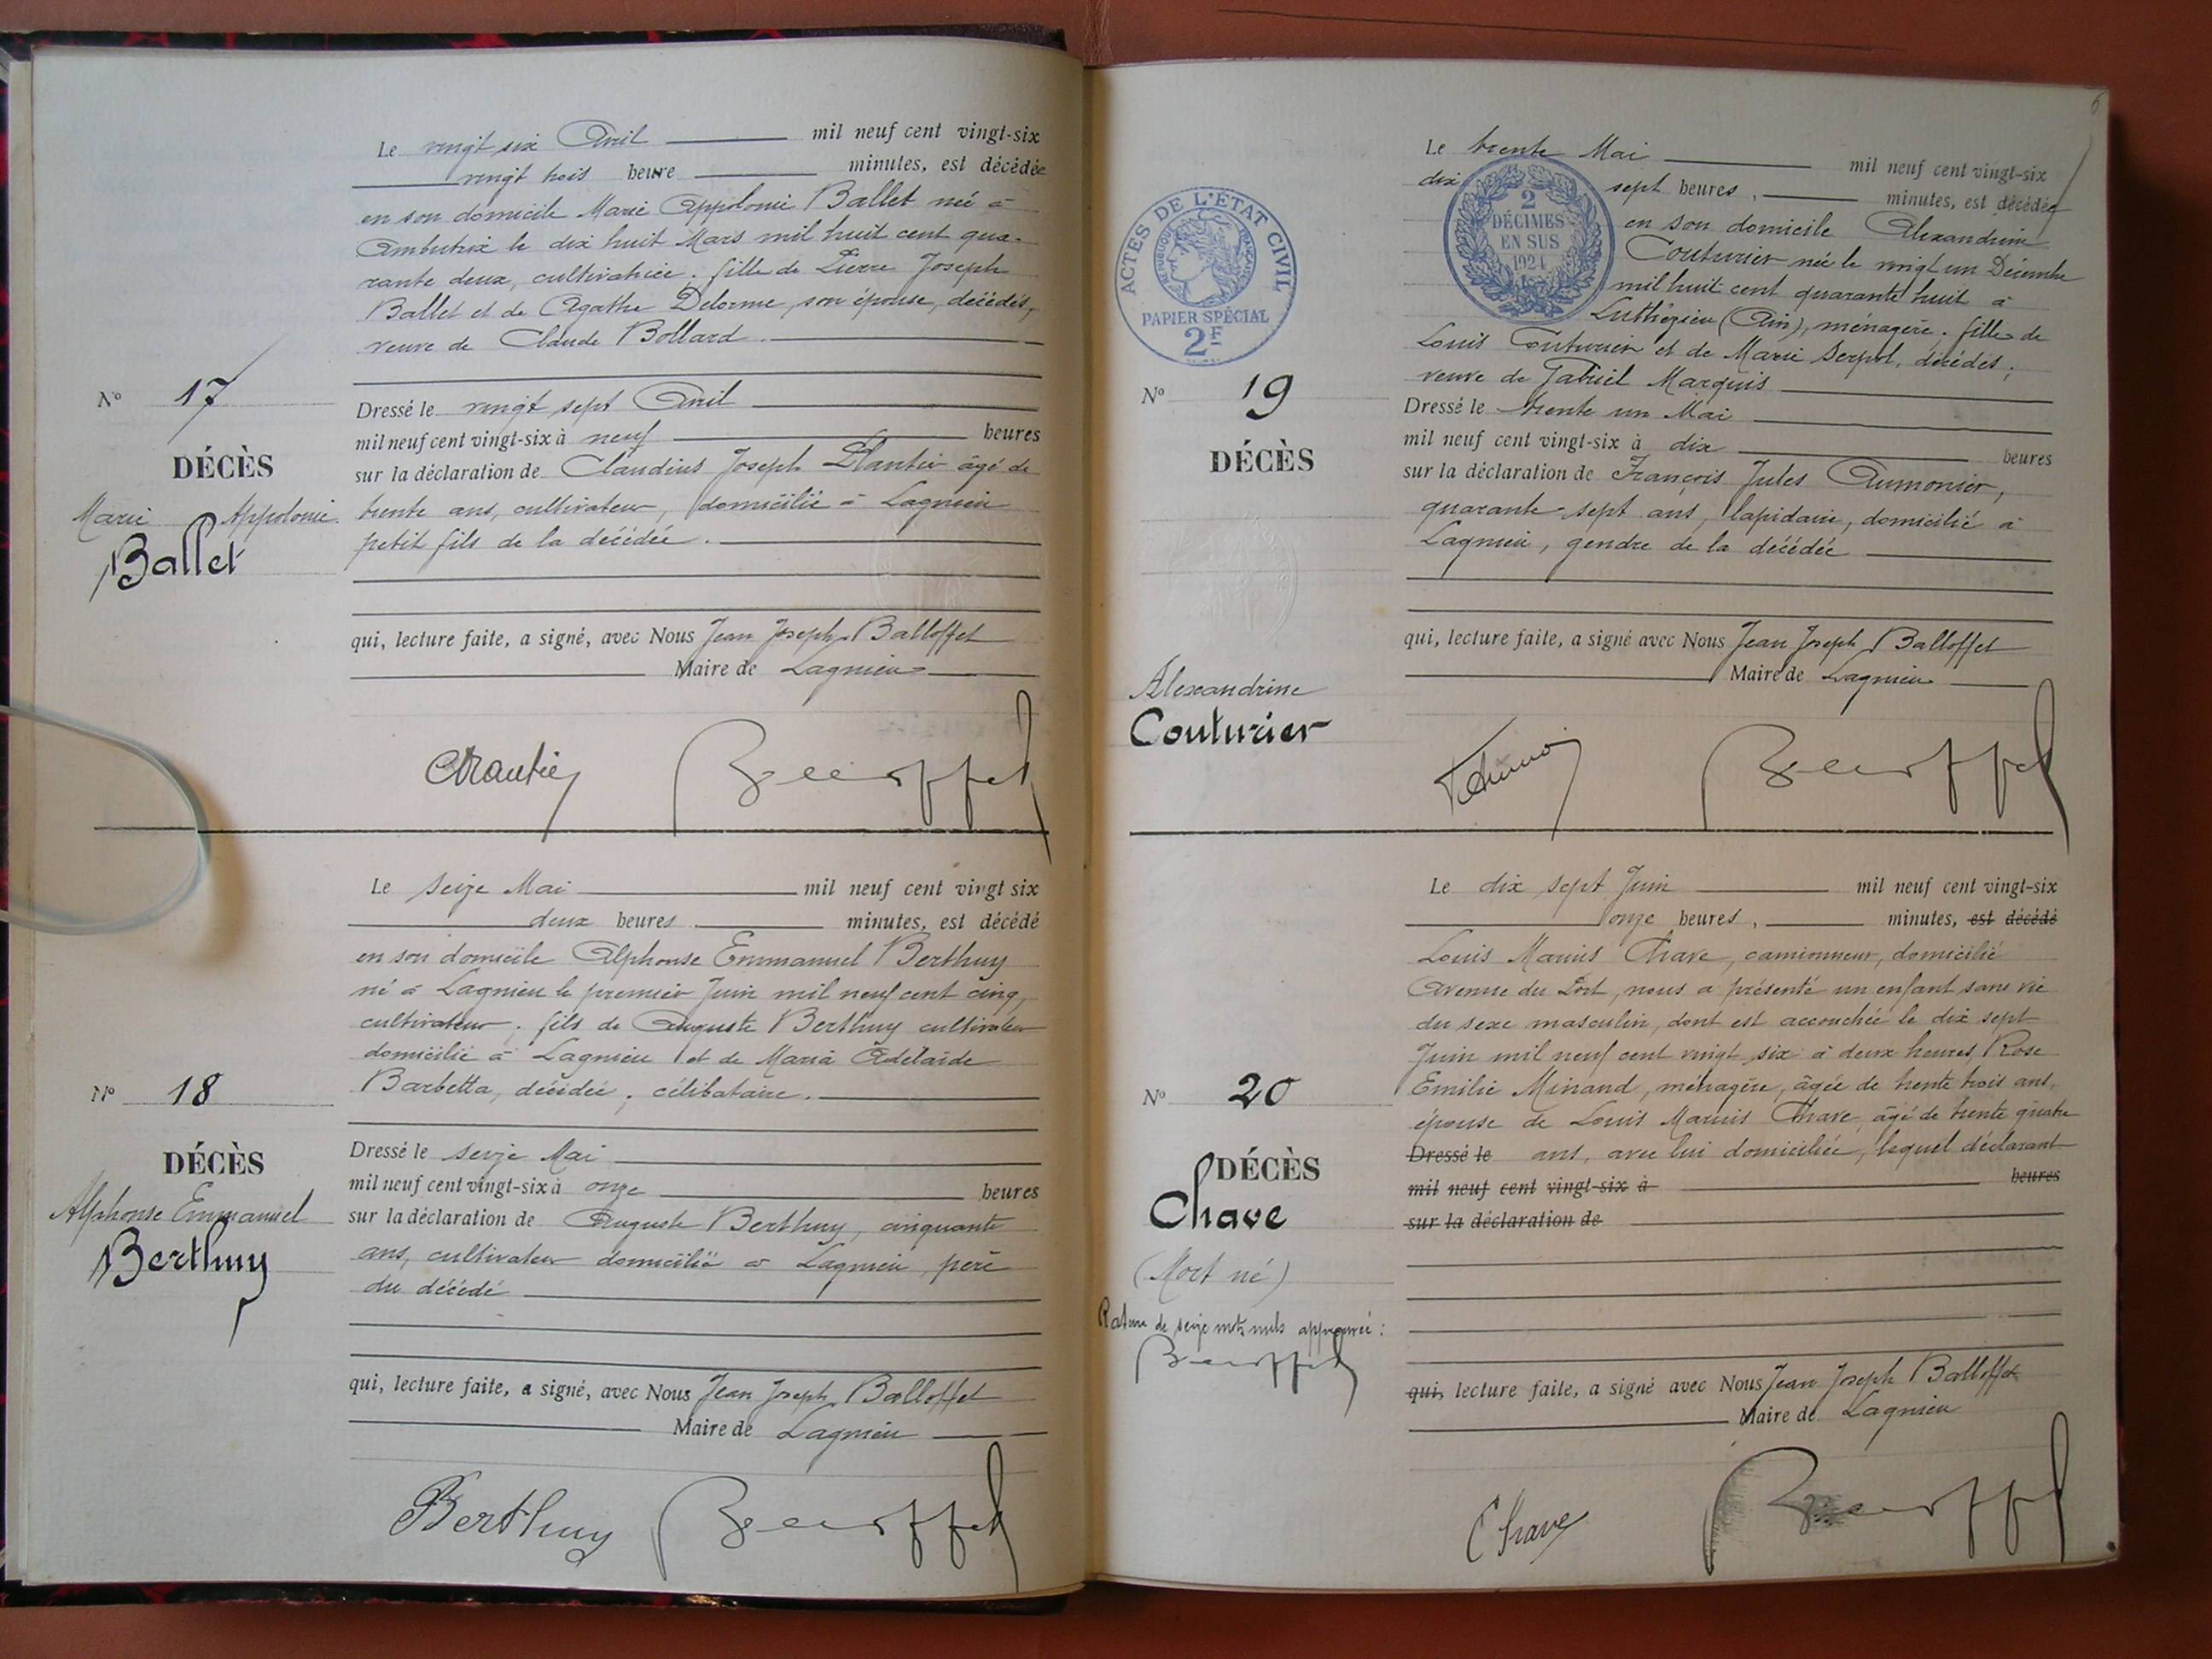 Le vingt six Avril mil neuf cent vingt-six
vingt trois heure minutes, est décédée
en son domicile Marie Appolonie Ballet née à
Ambutrix le dix huit Mars mil huit cent qua-
rante deux, cultivatrice. fille de Pierre Joseph
Ballet et de Agathe Delorme, son épouse, décédés,
veuve de Claude Bollard.
N° 17
DÉCÈS
Marie Appolonie
Ballet
Dressé le vingt sept Avril
mil neuf cent vingt-six à neuf heures
sur la déclaration de Claudius Joseph Plantier âgé de
trente ans, cultivateur, domicilié à Lagnieu
petit fils de la décédée.
qui, lecture faite, a signé, avec Nous Jean Joseph Balloffet
Maire de Lagnieu
Balloffet
Le seize Mai mil neuf cent vingt six
deux heures minutes, est décédé
en son domicile Alphonse Emmanuel Berthuy
né à Lagnieu le premier Juin mil neuf cent cinq,
cultivateur. fils de Auguste Berthuy cultivateur
domicilié à Lagnieu et de Maria Adélaïde
Barbetta, décédée, célibataire.
N° 18
DÉCÈS
Alphonse Emmanuel
Berthuy
Dressé le seize Mai
mil neuf cent vingt-six à onze heures
sur la déclaration de Auguste Berthuy, cinquante
ans, cultivateur domicilié à Lagnieu, père
du décédé
qui, lecture faite, a signé, avec Nous Jean Joseph Balloffet
Maire de Lagnieu
Berthuy Balloffet
6
Le trente Mai mil neuf cent vingt-six
dix sept heures, minutes, est décédée
en son domicile Alexandrine
Couturier née le vingt un Décembre
mil huit cent quarante huit à
Luthézieu (Ain), ménagère. fille de
Louis Couturier et de Marie Serpol, décédés,
veuve de Gabriel Marquis
ACTES DE L'ÉTAT CIVIL
RÉPUBLIQUE FRANÇAISE
PAPIER SPÉCIAL
2F
2
DÉCIMES
EN SUS
1924
N° 19
DÉCÈS
Alexandrine
Couturier
Dressé le trente un Mai
mil neuf cent vingt-six à dix heures
sur la déclaration de François Jules Aumonier,
quarante-sept ans, lapidaire, domicilié à
Lagnieu, gendre de la décédée
qui, lecture faite, a signé avec Nous Jean Joseph Balloffet
Maire de Lagnieu
Balloffet
Le dix sept Juin mil neuf cent vingt-six
onze heures, minutes, est décédé
Louis Marius Chave, camionneur, domicilié
Avenue du Port, nous a présenté un enfant sans vie
du sexe masculin, dont est accouchée le dix sept
Juin mil neuf cent vingt six à deux heures, Rose
Emilie Minand, ménagère, âgée de trente trois ans,
épouse de Louis Marius Chave, âgé de trente quatre
Dressé le ans, avec lui domiciliée, lequel déclarant
mil neuf cent vingt-six à heures
sur la déclaration de
N° 20
DÉCÈS
Chave
(Mort né)
Rature de seize mots nuls approuvée :
Balloffet
qui, lecture faite, a signé avec Nous Jean Joseph Balloffet
Maire de Lagnieu
Chave Balloffet